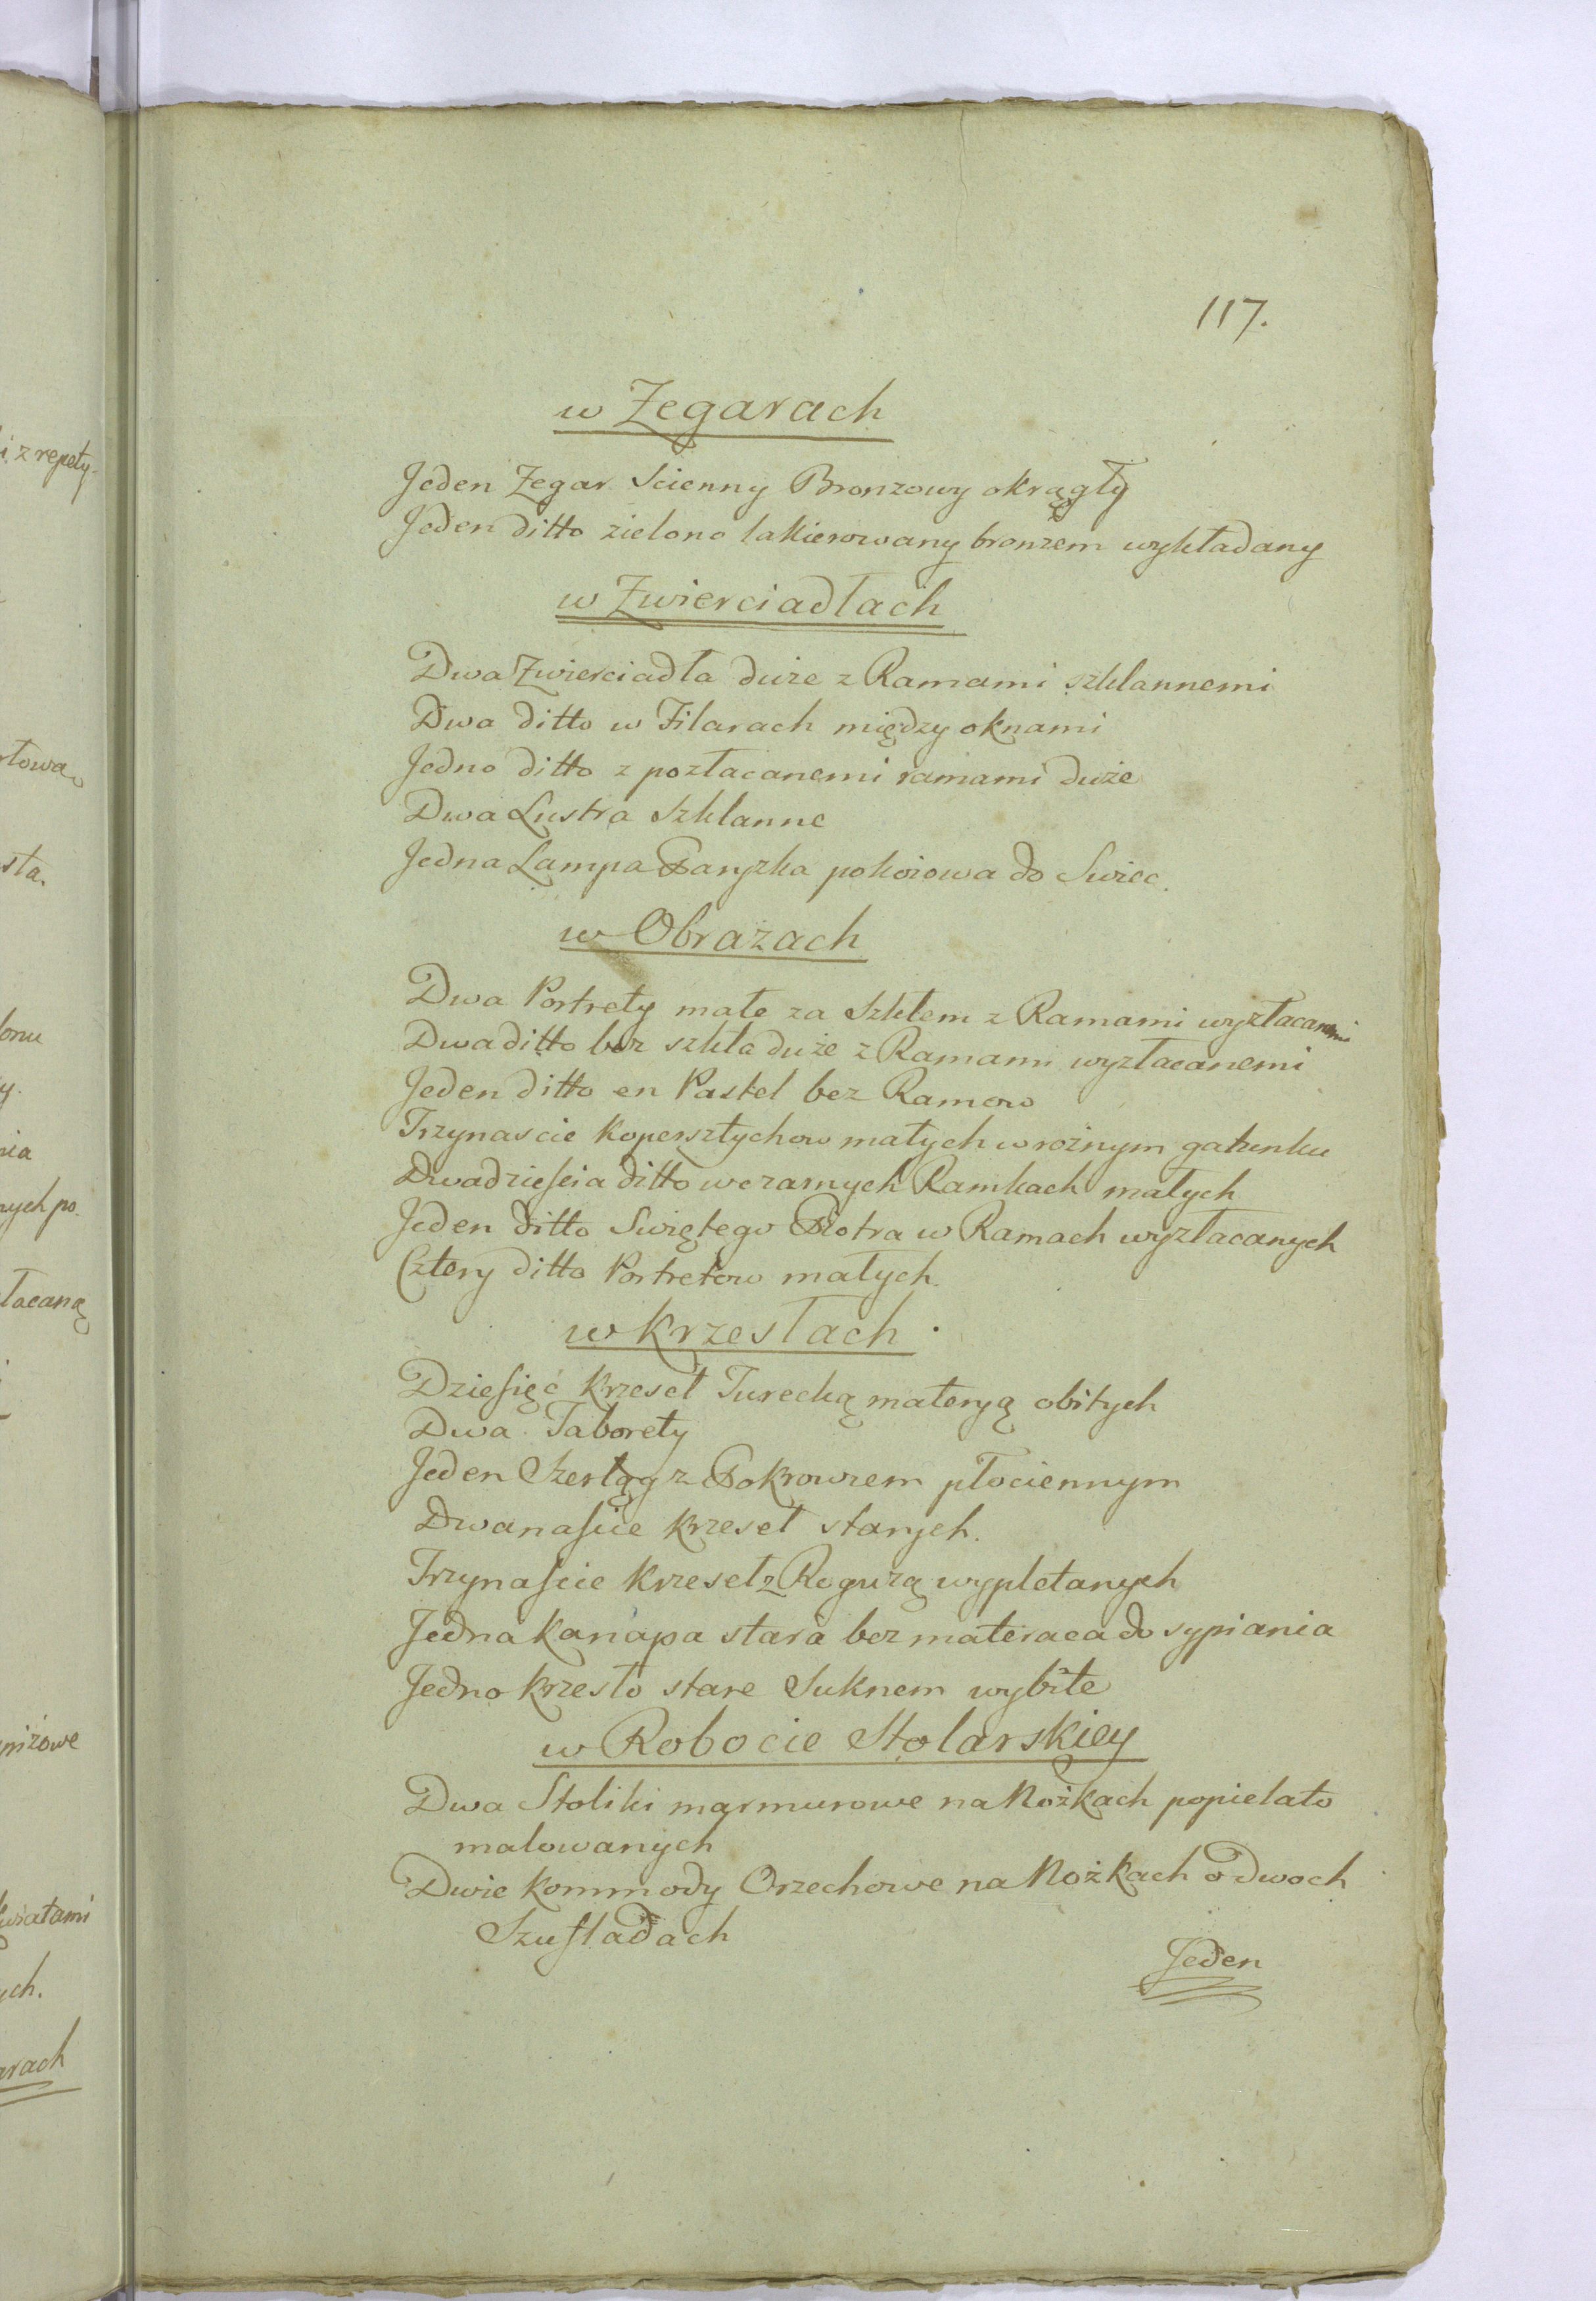 i z repety-
sta.
ych po.
łacaną
ych.
117.
w Zegarach
Jeden Zegar Scienny Bronzowy okrągły
Jeden ditto zielono lakierowany bronzem wykładany
w Zwierciadłach
Dwa Zwierciadła duże z Ramami szklannemi
Dwa ditto w Filarach między oknami
Jedno ditto z pozłacanemi ramami duże
Dwa Lustra Szklanne
Jedna Lampa Paryzka pokoiowa do Swiec.
w Obrazach
Dwa Portrety małe za Szkłem z Ramami wyzłacanemi
Dwa ditto bez szkła duże z Ramami wyzłacanemi
Jeden ditto en Pastel bez Ramow
Trzynascie Kopersztychow małych w rożnym gatunku
Dwadzieścia ditto w czarnych Ramkach małych
Jeden ditto Swiętego Piotra w Ramach wyzłacanych
Cztery ditto Portretow małych.
w Krzesłach.
Dziesięć Krzeseł Turecką materyą obitych
Dwa Taborety
Jeden Szezląg z Pokrowcem płociennym
Dwanascie Krzeseł starych.
Trzynascie Krzeseł z Roguzą wypletanych
Jedna Kanapa stara bez materaca do sypiania
Jedno Krzesło stare Suknem wybite
w Robocie Stolarskiey
Dwa Stoliki marmurowe na Nożkach popielato
malowanych
Dwie Kommody Orzechowe na Nożkach o dwoch
Szufladach
Jeden